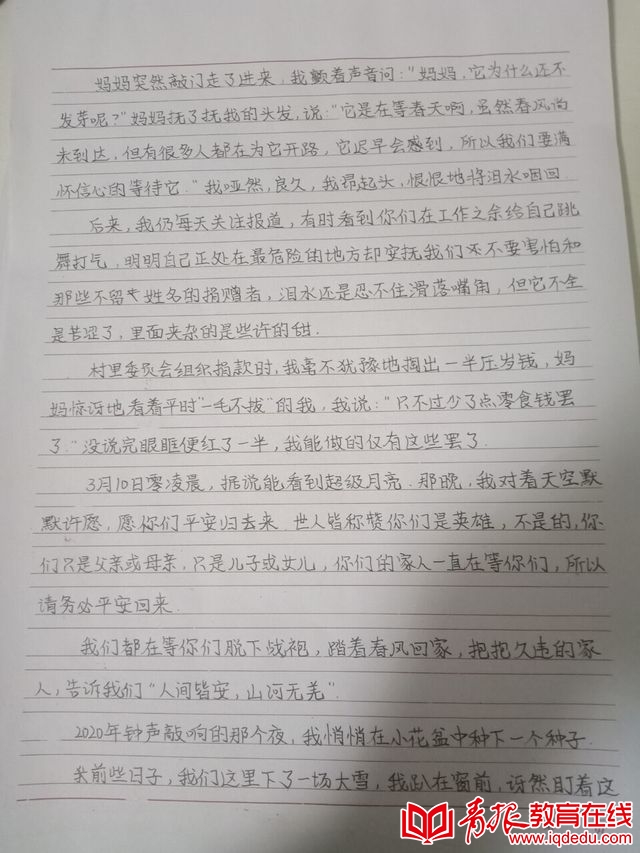 妈妈突然敲门走了进来，我颤着声音问：“妈妈，它为什么还不
发芽呢？”妈妈抚了抚我的头发，说：“它是在等春天啊，虽然春风尚
未到达，但有很多人都在为它开路，它迟早会感到，所以我们要满
怀信心的等待它.”我哑然，良久，我昂起头，恨恨地将泪水咽回.
后来，我仍每天关注报道，有时看到你们在工作之余给自己跳
舞打气，明明自己正处在最危险的地方却安抚我们还不要害怕和
那些不留姓名的捐赠者，泪水还是忍不住滑落嘴角，但它不全
是苦涩了，里面夹杂的是些许的甜.
村里委员会组织捐款时，我毫不犹豫地掏出一半压岁钱，妈
妈惊讶地看着平时“一毛不拔”的我，我说：“只不过少了点零食钱罢
了.”没说完眼眶便红了一半，我能做的仅有这些罢了.
3月10日零凌晨，据说能看到超级月亮.那晚，我对着天空默
默许愿，愿你们平安归去来.世人皆称赞你们是英雄，不是的，你
们只是父亲或母亲，只是儿子或女儿，你们的家人一直在等你们，所以
请务必平安回来.
我们都在等你们脱下战袍，踏着春风回家，抱抱久违的家
人，告诉我们“人间皆安，山河无恙”.
2020年钟声敲响的那个夜，我悄悄在小花盆中种下一个种子.
前些日子，我们这里下了一场大雪，我趴在窗前，讶然盯着这
青报教育在线
www.iqdedu.com